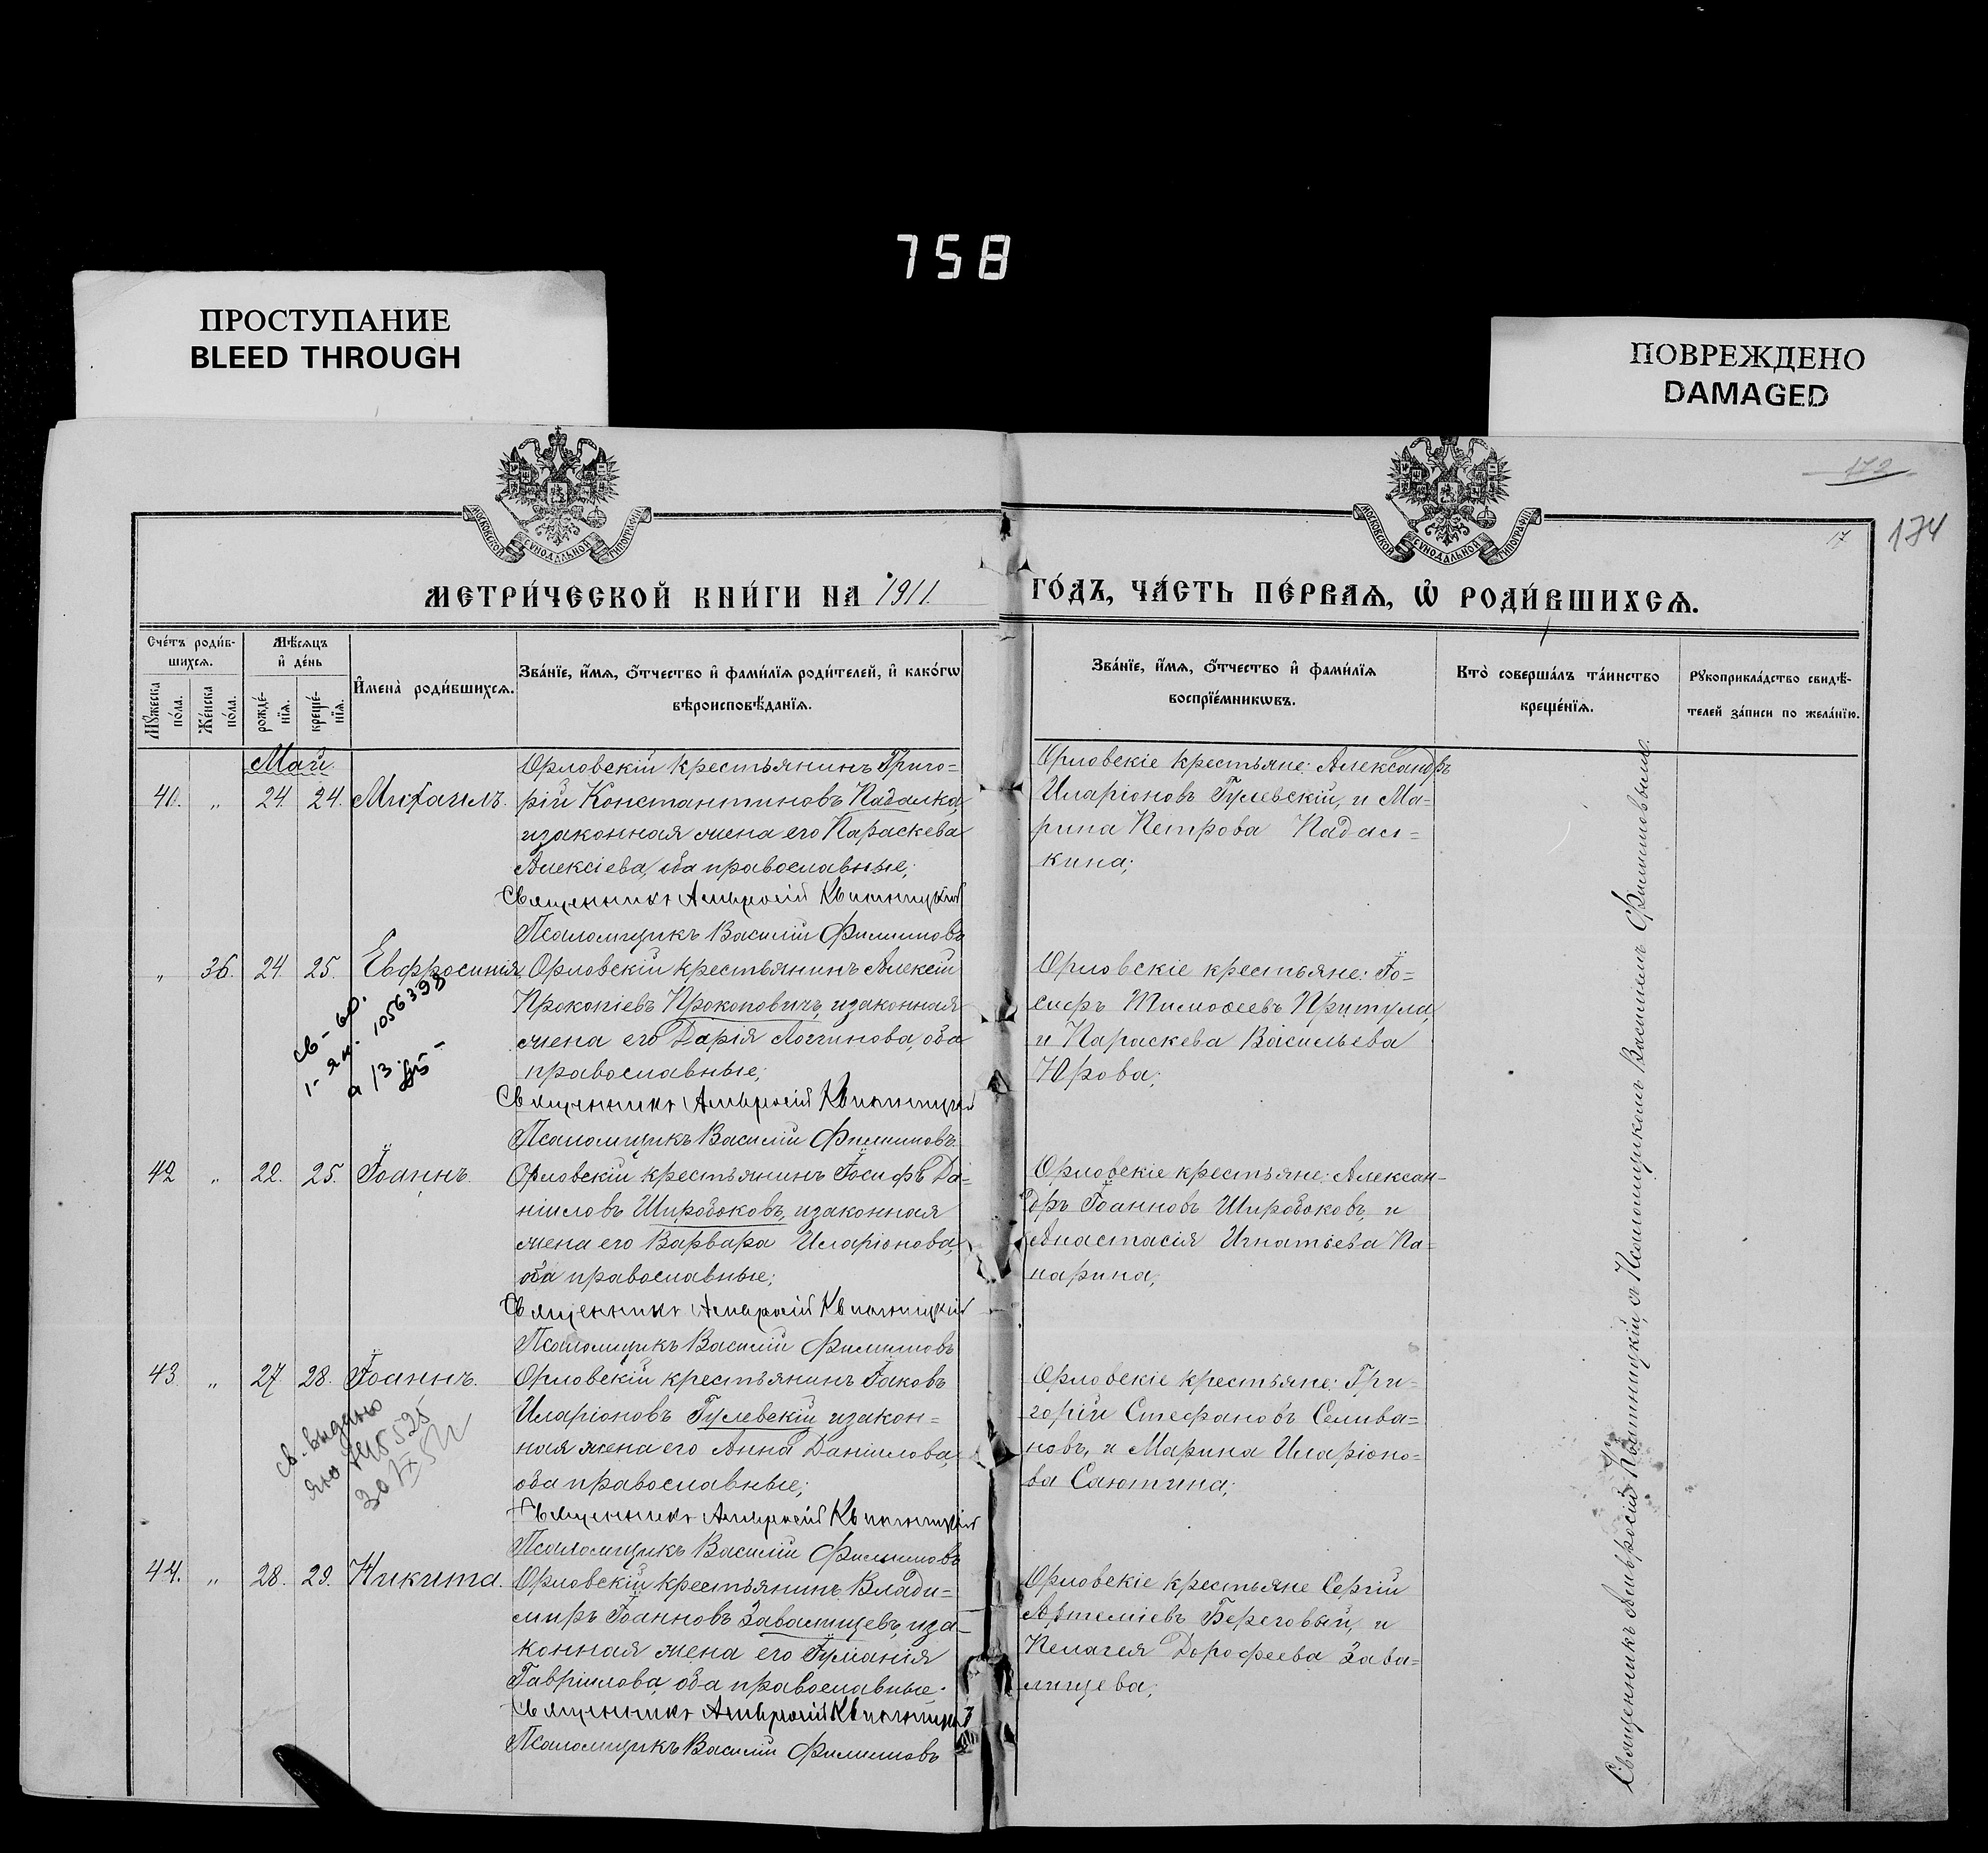 758
ПРОСТУПАНИЕ
BLEED THROUGH
ПОВРЕЖДЕНО
DAMAGED
МОСКОВСКОЙ СѴНОДАЛЬНОЙ ТИПОГРАФІИ
МОСКОВСКОЙ СѴНОДАЛЬНОЙ ТИПОГРАФІИ
172
174
17
МЕТРИ́ЧЕСКОЙ КНИ́ГИ НА 1911.
ГО́ДЪ, ЧА́СТЬ ПЕ́РВАѦ, Ѽ РОДИ́ВШИХСѦ.
Сче́тъ роди́в-
шихсѧ.
Мꙋ́жеска по́ла.
Же́нска по́ла.
Мѣ́сѧцъ
и҆ де́нь
рожде́-
нїѧ.
креще́-
нїѧ.
И҆мена̀ роди́вшихсѧ.
Зва́нїе, и҆́мѧ, ѻ҆́тчество и҆ фами́лїѧ роди́телей, и҆ како́гѡ
вѣроисповѣ́данїѧ.
Зва́нїе, и҆́мѧ, ѻ҆́тчество и҆ фами́лїѧ
воспрїе́мникѡвъ.
Кто̀ соверша́лъ та́инство
креще́нїѧ.
Рꙋкоприкла́дство свидѣ́-
телей за́писи по жела́нїю.
Май.
40. „ 24. 24. Михаилъ.
Орловскій крестьянинъ Григо=
рій Константиновъ Падалка,
и законная жена его Параскева
Алексіева, оба православные;
Священникъ Амвросій Квитницкій
Псаломщикъ Василій Филимовъ
Орловскіе крестьяне: Александръ
Иларіоновъ Гулевскій, и Ма=
рина Петрова Падал=
кина;
„ 36. 24. 25. Евфросинія.
св-во.
1-ЯИ. 1056398
Орловскій крестьянинъ Алексій
Прокопіевъ Прокоповичъ, и законная
жена его Дарія Логгинова, оба
православные;
Священникъ Амвросій Квитницкій
Псаломщикъ Василій Филимовъ
Орловскіе крестьяне: Іо=
сифъ Тимоѳеевъ Притула,
и Параскева Васильева
Юрова;
42 „ 22. 25. Іоаннъ.
Орловскій крестьянинъ Іосифъ Да=
ніиловъ Широбоковъ, и законная
жена его Варвара Иларіонова,
оба православные;
Священникъ Амвросій Квитницкій
Псаломщикъ Василій Филимовъ
Орловскіе крестьяне: Алексан-
дръ Іоанновъ Широбоковъ, и
Анастасія Игнатьева Па=
нарина;
43. „ 27. 28. Іоаннъ.
св. выдано
Орловскій крестьянинъ Іаковъ
Иларіоновъ Гулевскій и закон=
ная жена его Анна Даніилова,
оба православные;
Священникъ Амвросій Квитницкій
Псаломщикъ Василій Филимовъ
Орловскіе крестьяне: Гри-
горій Стефановъ Селива=
новъ, и Марина Иларіоно=
ва Саютина;
44. „ 28. 29. Никита.
Орловскій крестьянинъ Влади=
миръ Іоанновъ Завалищевъ, и за-
конная жена его Іуліанія
Гавріилова, оба православные;
Священникъ Амвросій Квитницкій
Псаломщикъ Василій Филимовъ
Орловскіе крестьяне Сергій
Артеміевъ Береговый, и
Пелагея Дорофеева Зава=
лищева;
Священникъ Амвросій Квитницкій, съ Псаломщикомъ Василіемъ Филимовымъ.